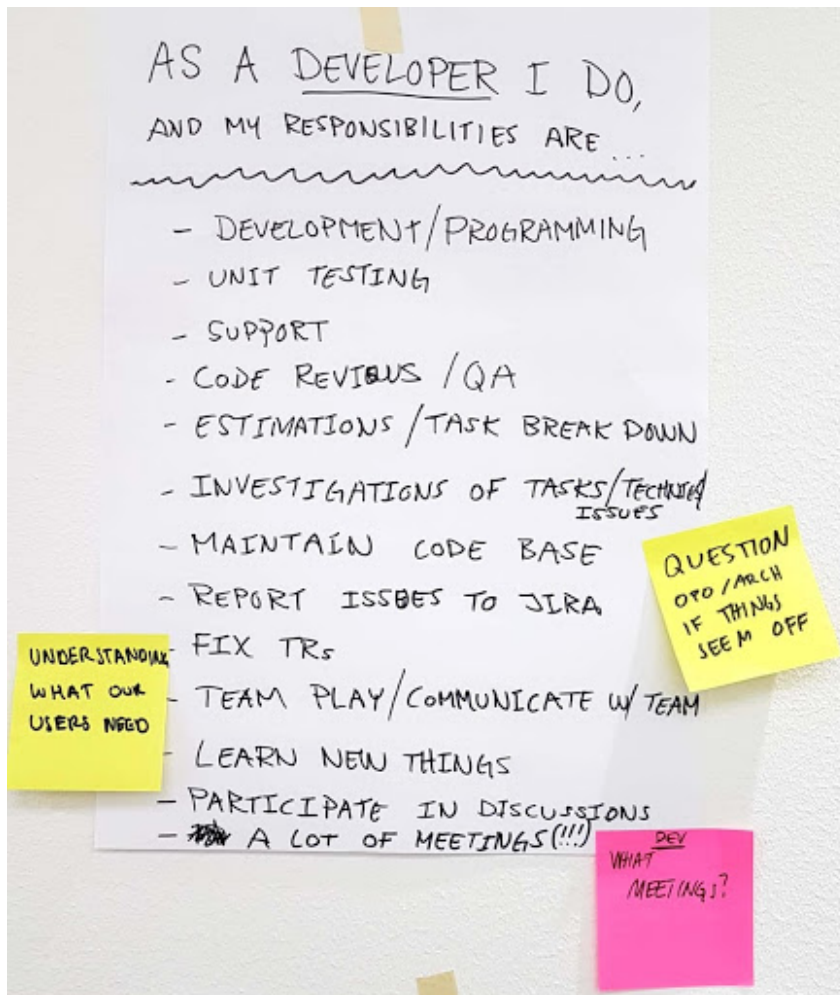 AS A DEVELOPER I DO,
AND MY RESPONSIBILITIES ARE...
- DEVELOPMENT/PROGRAMMING
- UNIT TESTING
- SUPPORT
- CODE REVIEWS / QA
- ESTIMATIONS / TASK BREAK DOWN
- INVESTIGATIONS OF TASKS/TECHNICAL
ISSUES
- MAINTAIN CODE BASE
- REPORT ISSUES TO JIRA
- FIX TRs
- TEAM PLAY/COMMUNICATE W/ TEAM
- LEARN NEW THINGS
- PARTICIPATE IN DISCUSSIONS
- A LOT OF MEETINGS (!!!)
QUESTION
OPO / ARCH
IF THINGS
SEEM OFF
UNDERSTANDING
WHAT OUR
USERS NEED
DEV
WHAT
MEETINGS?